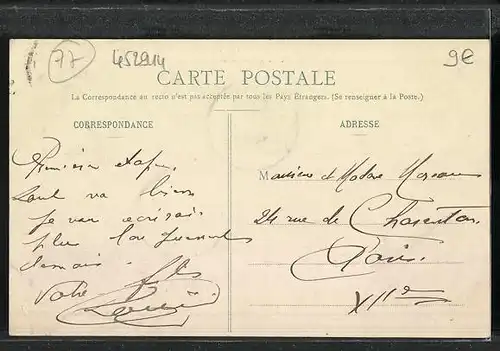 77
452914
9€
CARTE POSTALE
La Correspondance au recto n'est pas acceptée par tous les Pays Étrangers. (Se renseigner à la Poste.)
CORRESPONDANCE
Première étape,
tout va bien
je vous écrirai
plus longuement
demain.
Votre
Louis
ADRESSE
Monsieur et Madame Moreau
24 rue de Charenton
Paris.
XIIe